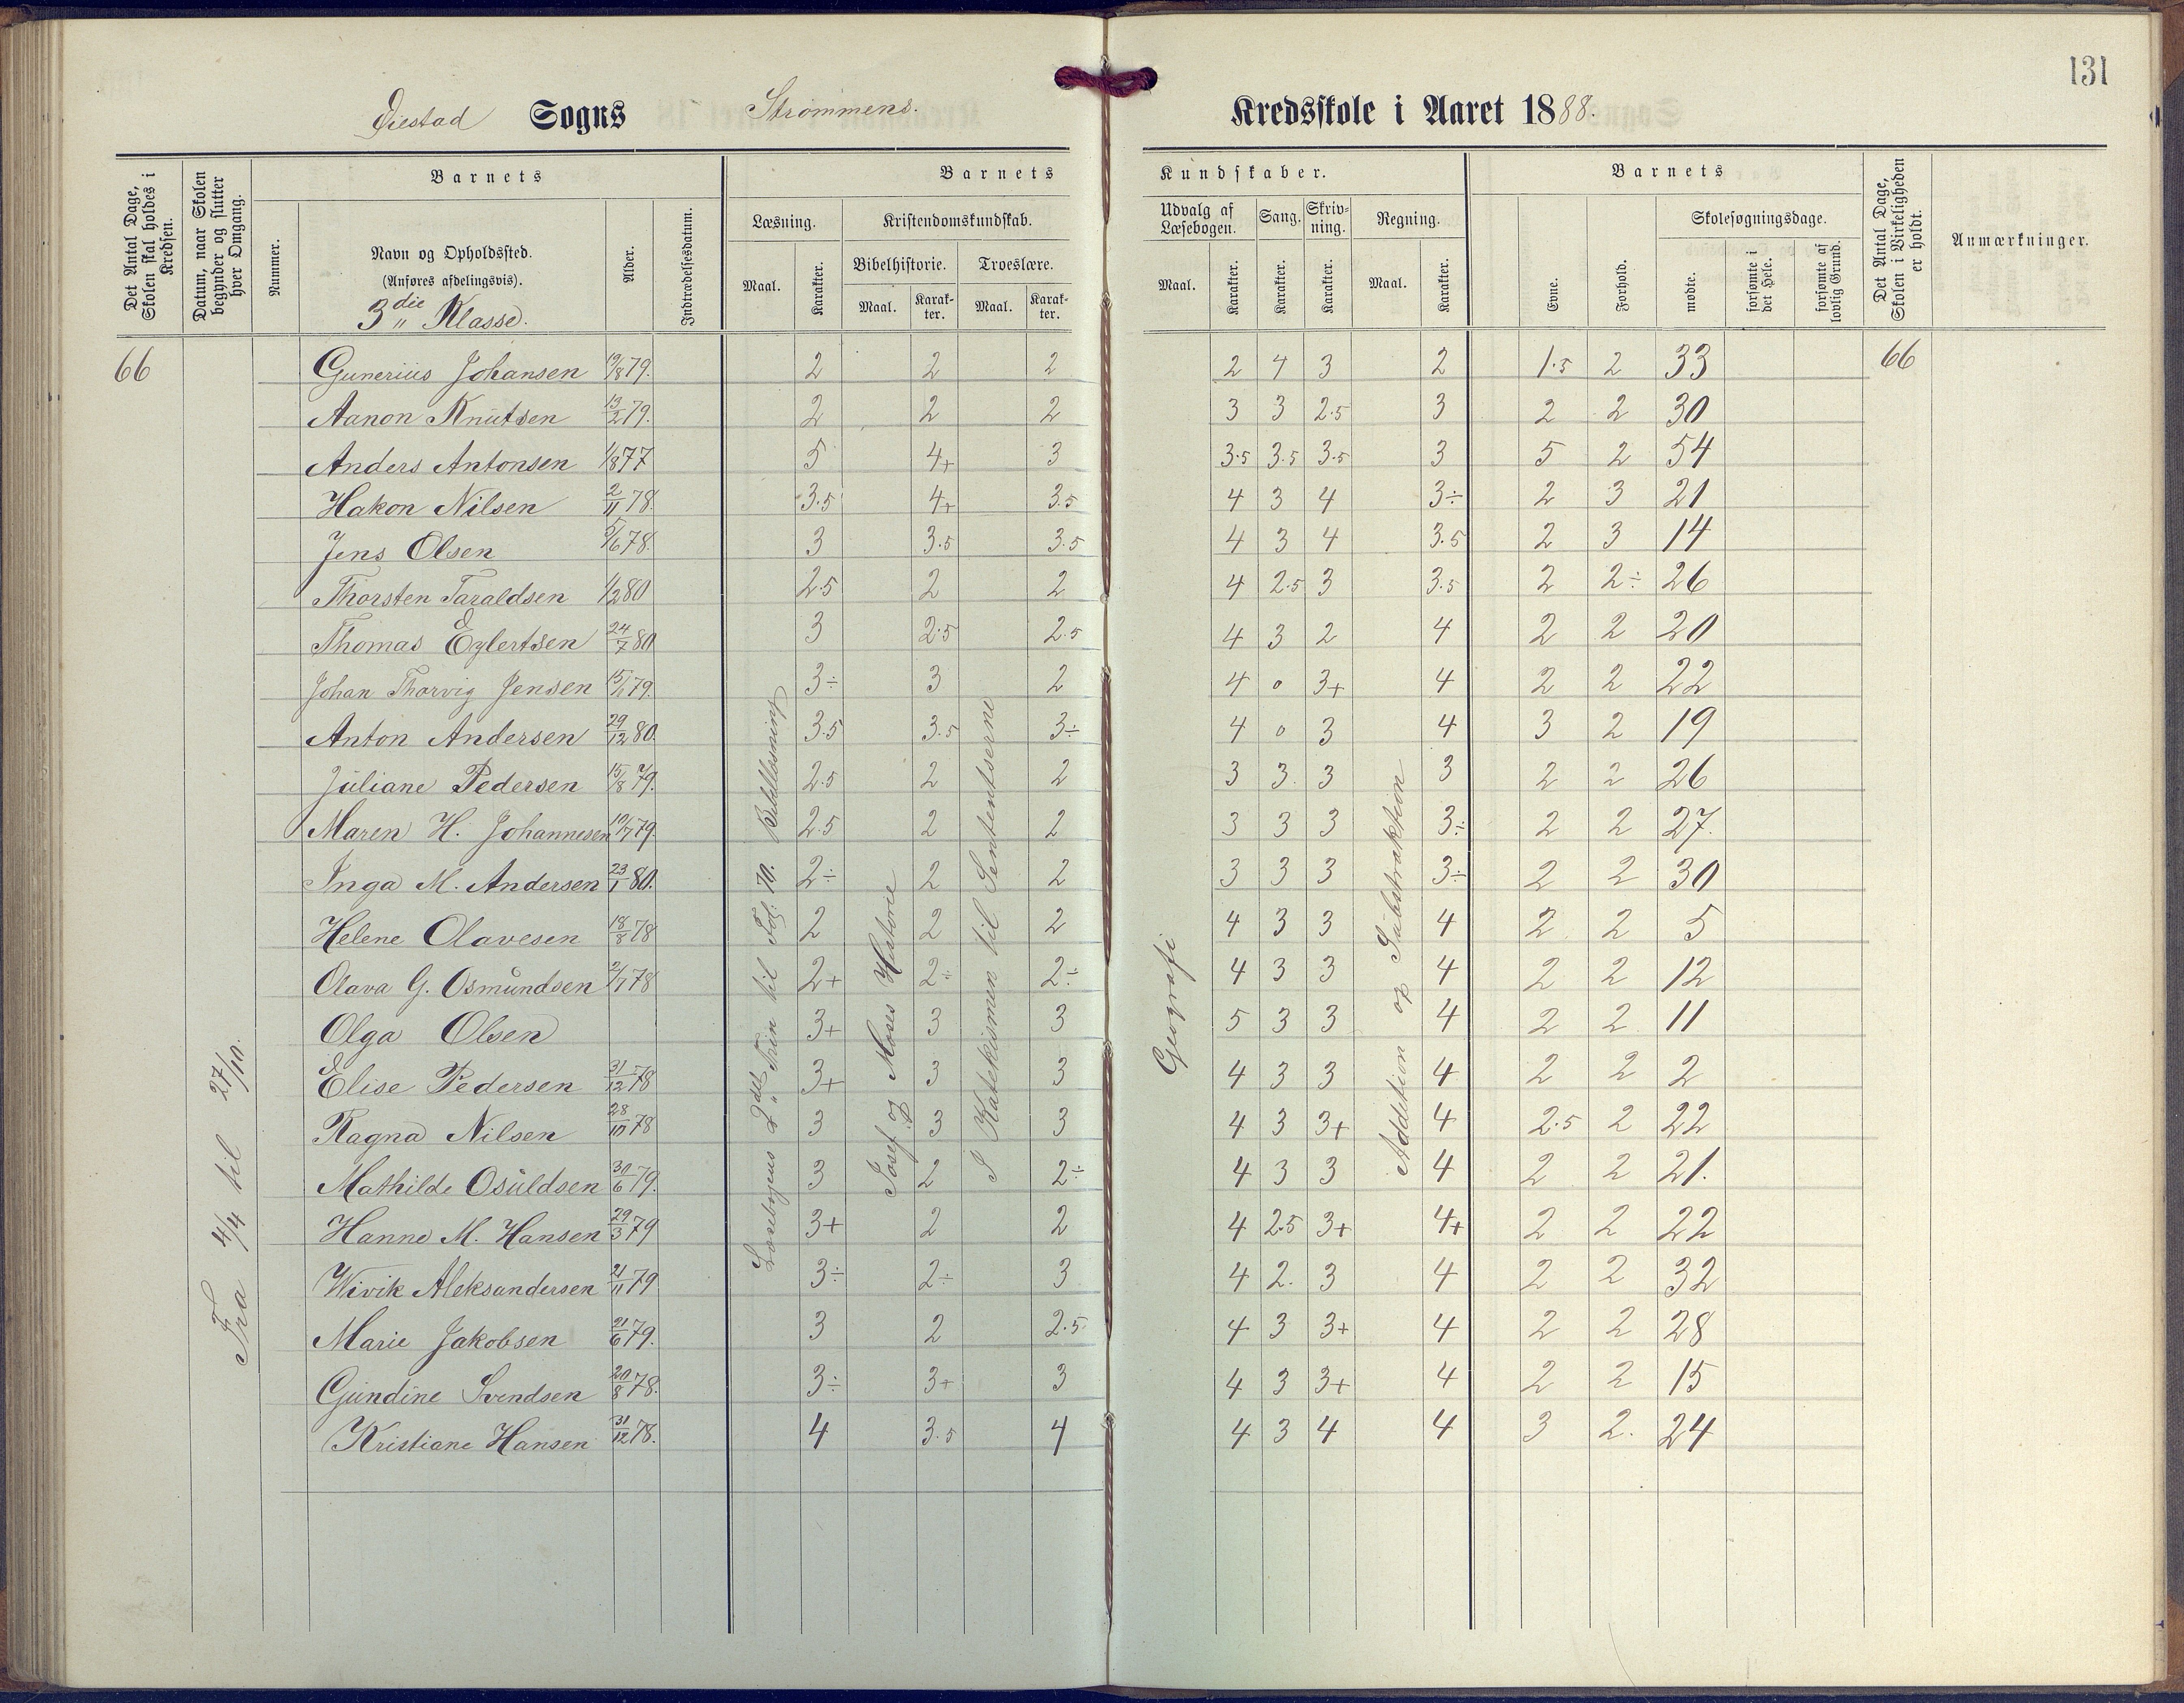 131
Øiestad Sogns Strømmens. Kredsskole i Aaret 1888.
Det Antal Dage, Skolen skal holdes i Kredsen.
Datum, naar Skolen begynder og slutter hver Omgang.
Barnets
Nummer.
Navn og Opholdssted.
(Anføres afdelingsvis).
3die Klasse.
Alder.
Indtrædelsesdatum.
Barnets Kundskaber.
Læsning.
Maal.
Karakter.
Kristendomskundskab.
Bibelhistorie.
Maal.
Karakter.
Troeslære.
Maal.
Karakter.
Udvalg af Læsebogen.
Maal.
Karakter.
Sang.
Karakter.
Skrivning.
Karakter.
Regning.
Maal.
Karakter.
Barnets
Evne.
Forhold.
Skolesøgningsdage.
mødte.
forsømte i det Hele.
forsømte af lovlig Grund.
Det Antal Dage, Skolen i Virkeligheden er holdt.
Anmærkninger.
66 Gunerius Johansen 19/8 79. 2 2 2 2 4 3 2 1.5 2 33 66
Aanon Knutsen 13/2 79. 2 2 2 3 3 2.5 3 2 2 30
Anders Antonsen 1/8 77 5 4+ 3 3.5 3.5 3.5 3 5 2 54
Hakon Nilsen 2/11 78. 3.5 4+ 3.5 4 3 4 3÷ 2 3 21
Jens Olsen 5/6 78. 3 3.5 3.5 4 3 4 3.5 2 3 14
Thorsten Taraldsen 1/2 80 2.5 2 2 4 2.5 3 3.5 2 2÷ 26
Thomas Eylertsen 24/7 80 3 2.5 2.5 4 3 2 4 2 2 20
Johan Thorvig Jensen 15/1 79. 3÷ 3 2 4 0 3+ 4 2 2 22
Anton Andersen 29/12 80. 3.5 3.5 3÷ 4 0 3 4 3 2 19
Juliane Pedersen 15/8 79. 2.5 2 2 3 3. 3 3 2 2 26
Maren H. Johannesen 10/7 79. 2.5 2 2 3 3 3 3÷ 2 2 27.
Inga M. Andersen 23/1 80. 2÷ 2 2 3 3 3 3÷ 2 2 30
Helene Olavesen 18/8 78 2 2 2 4 3 3 4 2 2 5
Olava G. Osmundsen 2/7 78 2+ 2÷ 2÷ 4 3 3 4 2 2 12
Olga Olsen 3+ 3 3 5 3 3 4 2 2 11
Elise Pedersen 31/12 78 3+ 3 3 4 3 3 4 2 2 2
Ragna Nilsen 28/10 78 3 3 3 4 3 3+ 4 2.5 2 22
Mathilde Osuldsen 30/6 79. 3 2 2÷ 4 3 3 4 2 2 21.
Hanne M. Hansen 29/3 79 3+ 2 2 4 2.5 3+ 4+ 2 2 22
Wivik Aleksandersen 21/11 79 3÷ 2÷ 3 4 2. 3 4 2 2 32
Marie Jakobsen 21/6 79. 3 2 2.5 4 3 3+ 4 2 2 28
Gundine Svendsen 20/8 78. 3÷ 3+ 3 4 3 3+ 4 2 2 15
Kristiane Hansen 31/12 78. 4 3.5 4 4 3 4 4 3 2. 24
Fra 4/4 til 27/10.
Læsebogens 2det Trin til Pag. 70. Bibellæsning
Josef og Moses Historie
I Katekismen til Sententserne
Geografi
Addition og Substraktion